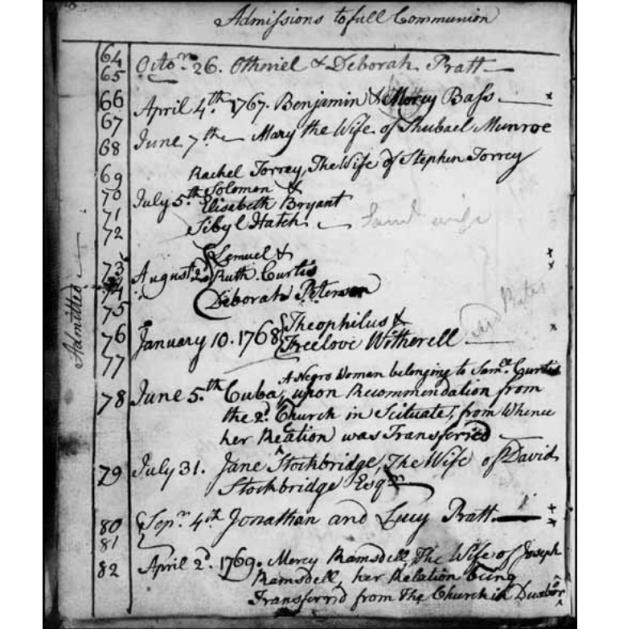 Admissions to full Communion
64
65 Octo.r 26. Othniel & Deborah Pratt
66
67 April 4.th 1767. Benjamin & Mercy Bass. x
68 June 7.th Mary the Wife of Shubael Munroe
69 Rachel Torrey, The Wife of Stephen Torrey
70 July 5.th Solomon &
71 Elisabeth Bryant
72 Sibyl Hatch Saml wife
73 August 2.d Lemuel & x
74 Ruth Curtis x
75 Deborah Peterson
Bates
76 January 10. 1768 Theophilus & x
77 Freelove Witherell
Admitted
A Negro Woman belonging to Sam.ll Curtis
78 June 5.th Cuba, upon Recommendation from
the 2.d Church in Scituate, from Whence
her Relation was Transferred
79 July 31. Jane Stockbridge, The Wife of David
Stockbridge Esq.r
80 Sep.r 4.th Jonathan and Lucy Pratt. x
81 x
82 April 2.d 1769. Mercy Ramsdell, The Wife of Joseph
Ramsdell, her Relation being
Transferrd from The Church in Duxbor.o